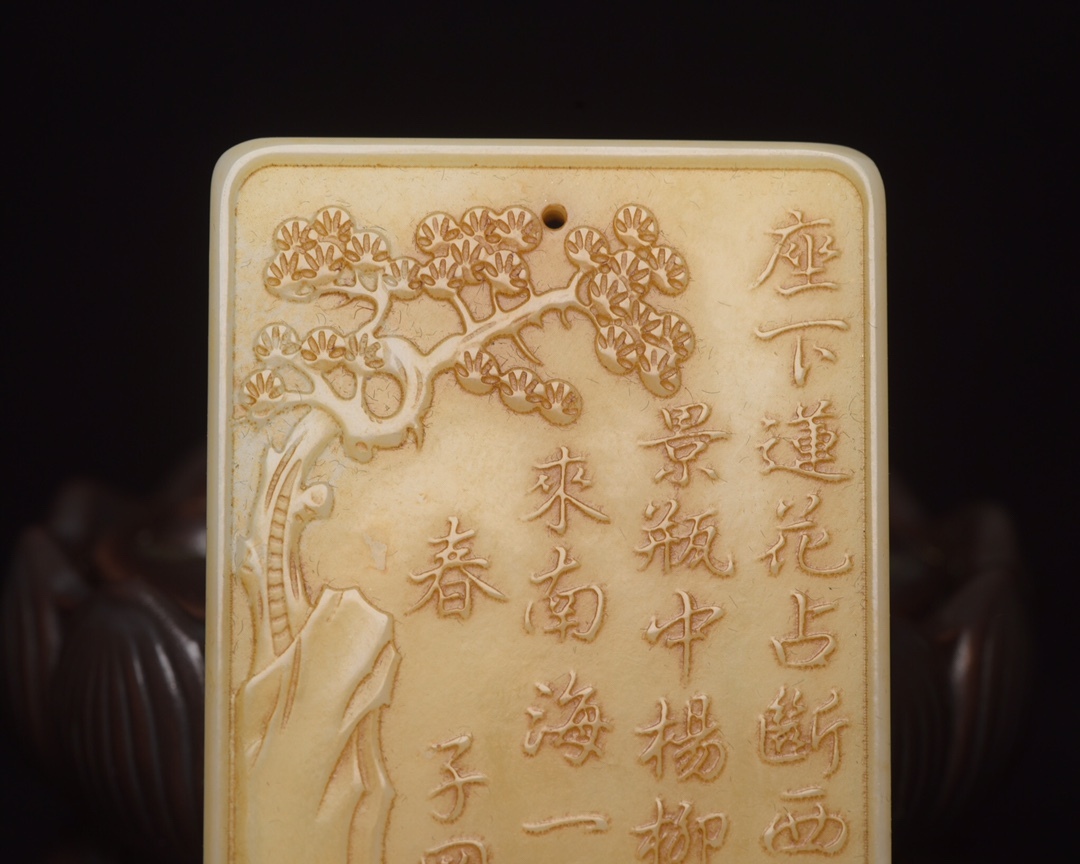 座下蓮花占斷西
景瓶中楊柳
來南海一
春
子